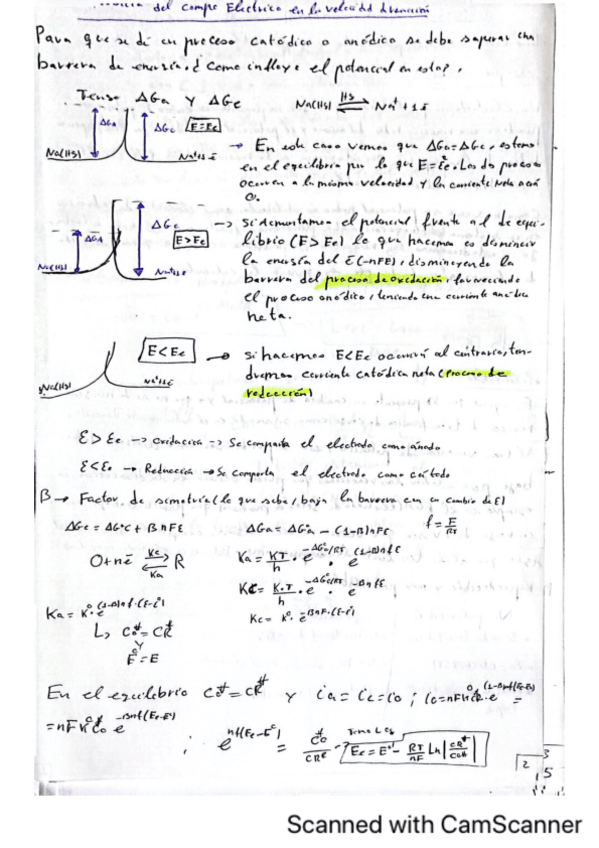 del campo Electrico en la velocidad
Para que se dé un proceso catódico o anódico se debe superar una
barrera de energía. ¿Como influye el potencial en esta?.
Tenso ΔGa y ΔGc
Na(Hg) ⇌ Na⁺ + 1ē
Hg
ΔGa ΔGc E=Ec
Na(Hg) Na⁺+ē
→ En este caso vemos que ΔGa=ΔGc, estamos
en el equilibrio por lo que E=Ec. Los dos procesos
ocurren a la misma velocidad y la corriente neta será
0.
ΔGa ΔGc E>Ec
Na(Hg) Na⁺+ē
→ Si aumentamos el potencial frente al de equi-
librio (E>Ee) lo que hacemos es disminuir
la energía del ē (-nFE), disminuyendo la
barrera del proceso de oxidación, favoreciendo
el proceso anódico, teniendo una corriente anódica
neta.
E<Ec
Na(Hg) Na⁺+ē
→ si hacemos E<Ec ocurrirá al contrario, ten-
dremos corriente catódica neta (proceso de
reducción)
E>Ec → oxidación → Se comporta el electrodo como ánodo
E<Ec → Reducción → Se comporta el electrodo como cátodo
β → Factor de simetría (lo que sube/baja la barrera con un cambio de E)
ΔGc = ΔG°c + βnFE ΔGa = ΔG°a - (1-β)nFE f = F/RT
O+nē ⇌ R
Kc
Ka
Ka = KT/h · e^(-ΔG°a/RT) · e^((1-β)nfE)
Kc = K·T/h · e^(-ΔG°c/RT) · e^(-βnfE)
Ka = K° · e^((1-β)nf·(E-E°))
Kc = K° · e^(-βnF·(E-E°))
↳ Co* = CR*
y
E° = E
En el equilibrio Co* = CR* y ia = ic = io ; io = nFK°CR · e^((1-β)nf(Ec-E°)) =
= nFK°Co e^(-βnf(Ec-E°))
; e^(nf(Ec-E°)) = Co*/CR* Ec = E°' - RT/nF Ln|CR*/Co*|
2
3
15
Scanned with CamScanner